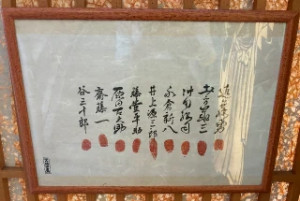 近藤勇
土方歳三
沖田総司
永倉新八
井上源三郎
藤堂平助
原田左之助
齋藤一
谷三十郎